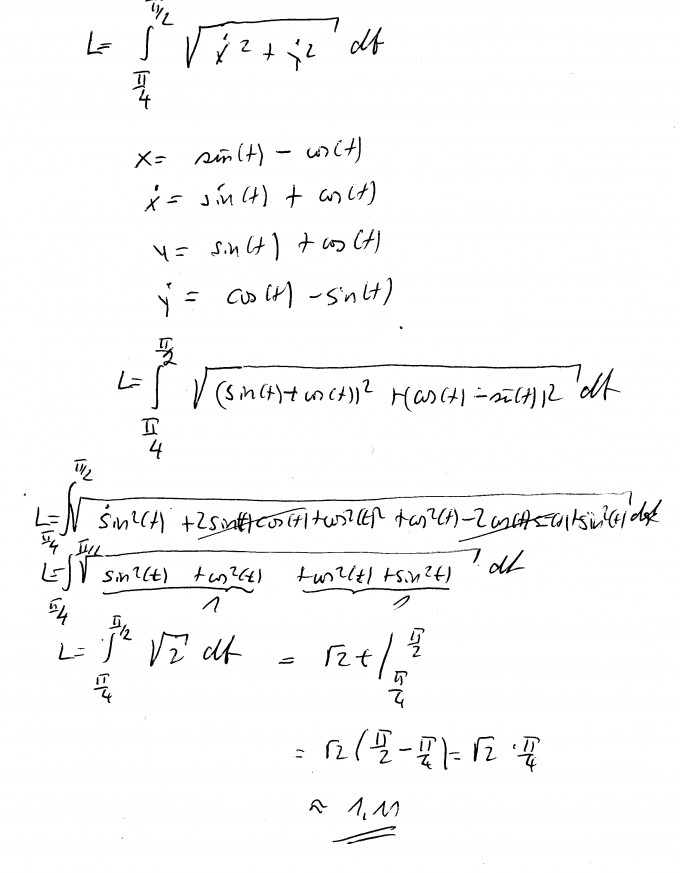 L= ∫_{π/4}^{π/2} √(ẋ² + ẏ²) dt
x= sin(t) - cos(t)
ẋ= sin(t) + cos(t)
y= sin(t) + cos(t)
ẏ = cos(t) - sin(t)
L= ∫_{π/4}^{π/2} √((sin(t)+cos(t))² + (cos(t) - sin(t))²) dt
L= ∫_{π/4}^{π/2} √(sin²(t) + 2 sin(t) cos(t) + cos²(t) + cos²(t) - 2 cos(t) sin(t) + sin²(t)) dt
L= ∫_{π/4}^{π/2} √(sin²(t) + cos²(t) + cos²(t) + sin²t) dt
1 1
L= ∫_{π/4}^{π/2} √2 dt = √2 t |_{π/4}^{π/2}
= √2 (π/2 - π/4) = √2 · π/4
≈ 1,11